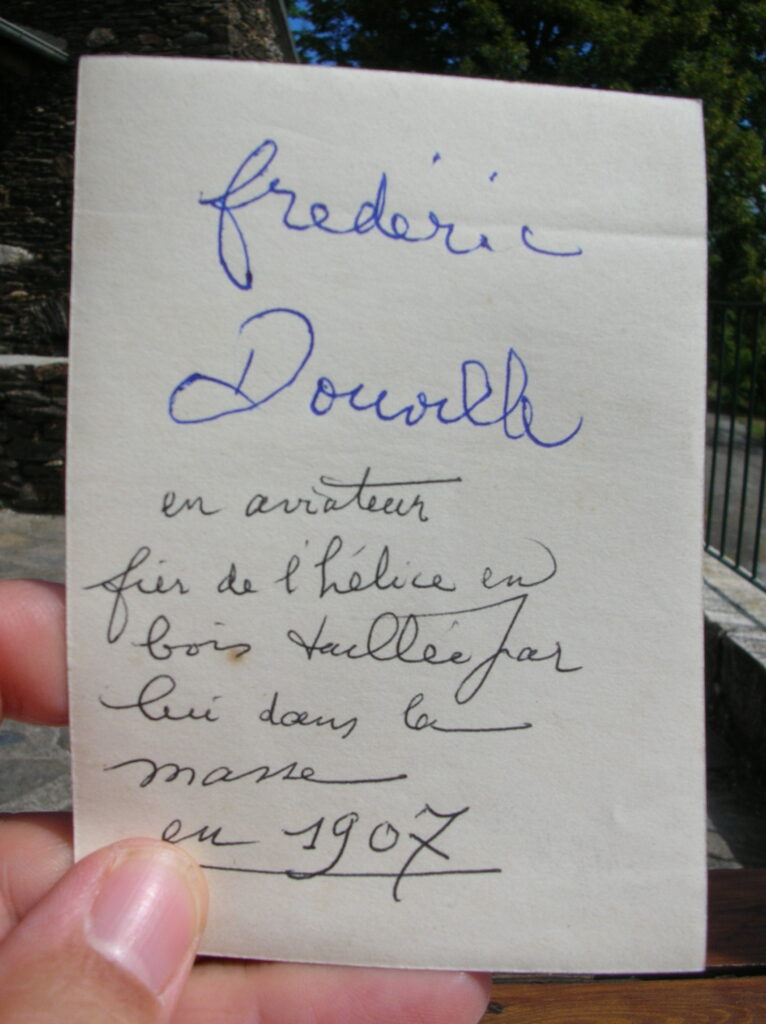 frédéric
Douville
en aviateur
fier de l'hélice en
bois taillée par
lui dans la
masse
en 1907